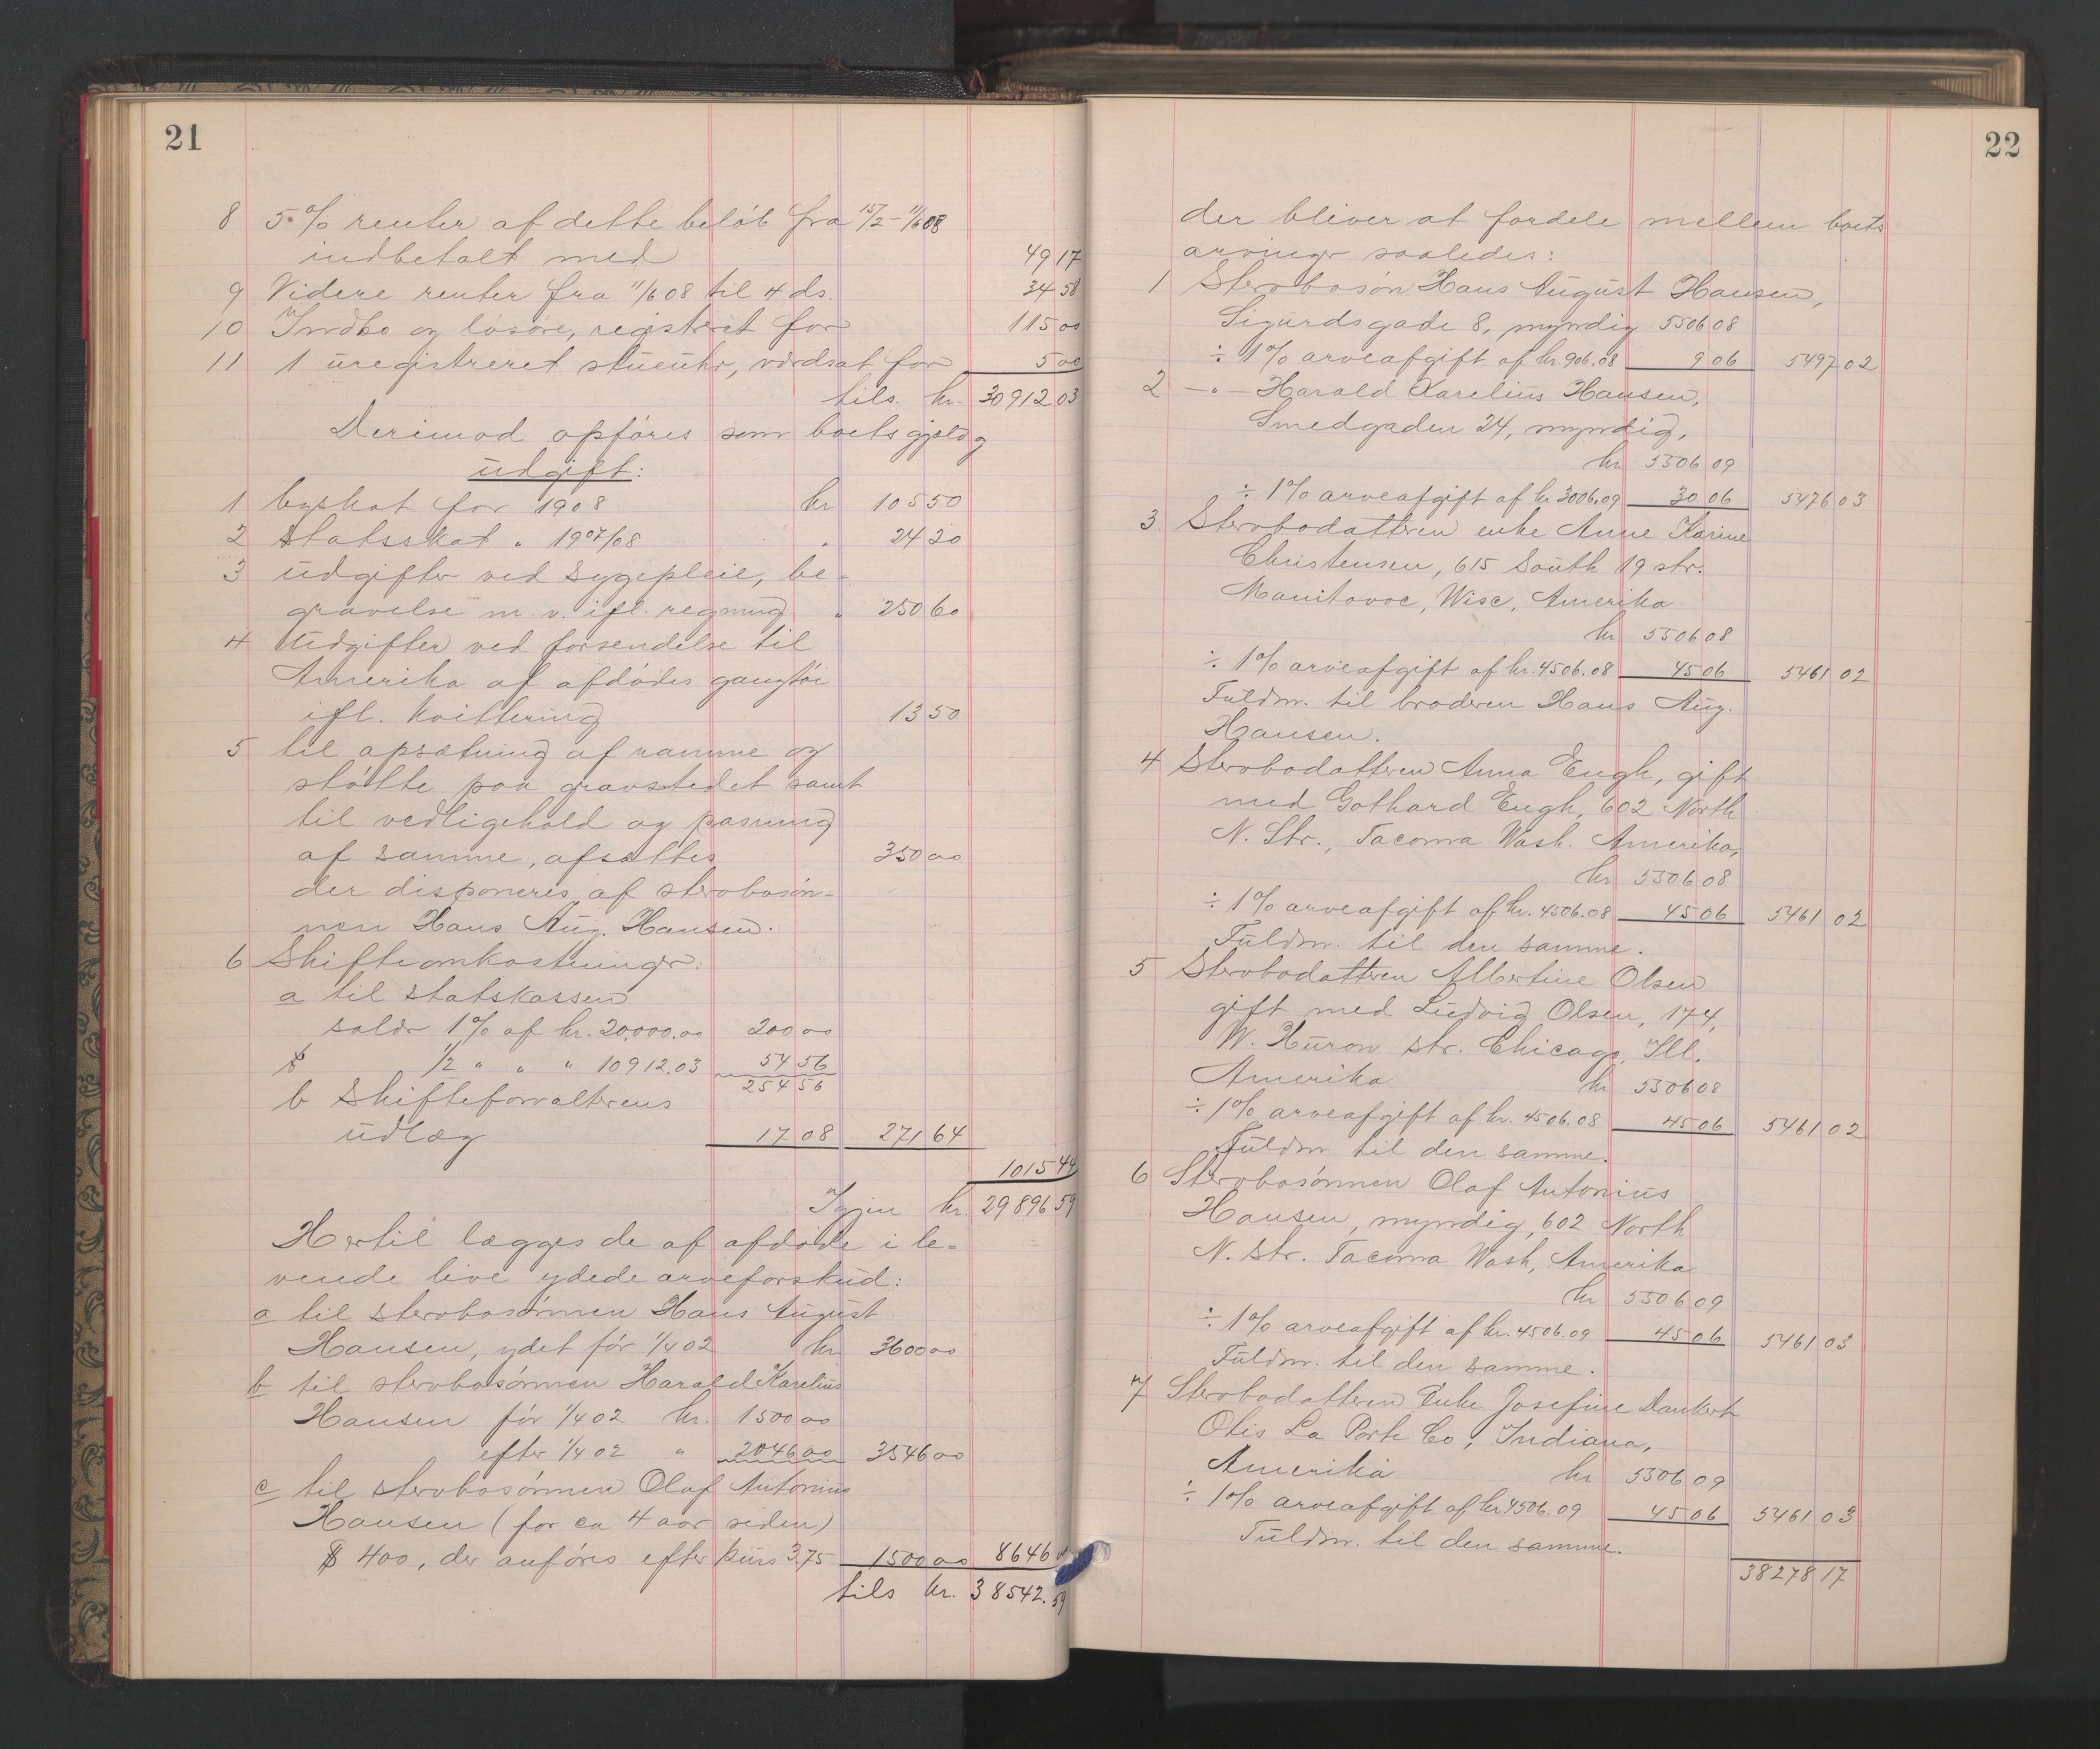 21
8 5% renter af dette beløb fra 15/2-11/6 08
indbetalt med 49 17
9 Videre renter fra 11/6 08 til 4 ds. 34 58
10 Indbo og løsøre, registreret for 115 00
11 1 uregistreret stueuhr, værdsat for 5 00
tils. kr. 30912 03
Derimod opføres som boets gjæld og
udgift:
1 byskat for 1908 kr 105 50
2 statsskat " 1907/08 " 24 20
3 udgifter ved sygepleie, be-
gravelse m. v. ifl. regning " 250 60
4 Udgifter ved forsendelse til
Amerika af afdødes gangtøi
ifl. kvittering 13 50
5 til opsætning af ramme og
støtte paa gravstedet samt
til vedligehold og pasning
af samme, afsættes 350 00
der disponeres af stervbosøn-
nen Hans Aug. Hansen.
6 Skifteomkostninger:
a til statskassen
saldr 1% af kr. 20,000.00 200 00
1/2 " " " 10912.03 54 56
254 56
b Skifteforvalterens
udlæg 17 08 271 64
1015 44
Igjen kr. 29896 59
Hertil lægges de af afdøde i le-
vende live ydede arveforskud:
a til stervbosønnen Hans August
Hansen, ydet før 1/4 02 kr 3600 00
b til stervbosønnen Harald Karelius
Hansen før 1/4 02 kr. 1500 00
efter 1/4 02 " 2046 00 3546 00
c til stervbosønnen Olaf Antonius
Hansen (for ca 4 aar siden)
$ 400, der anføres efter kurs 3,75 1500 00 8646 00
tils kr. 38542.59
22
der bliver at fordele mellem boets
arvinger saaledes:
1 Stervbosøn Hans August Hansen,
Sigurdsgade 8, myndig 5506 08
÷ 1% arveafgift af kr. 906.08 9 06 5497 02
2 -"- Harald Karelius Hansen,
Smedgaden 24, myndig,
kr 5506 09
÷ 1% arveafgift af kr 3006,09 30 06 5476 03
3 Stervbodatteren enke Anne Karine
Christensen, 615 South 19 str.
Manitovoc, Wisc, Amerika
kr 5506 08
÷ 1% arveafgift af kr. 4506.08 45 06 5461 02
Fuldm. til broderen Hans Aug.
Hansen.
4 Stervbodatteren Anna Engh, gift
med Gothard Engh, 602 North
N. Str., Tacoma Wash. Amerika,
kr 5506 08
÷ 1% arveafgift af kr. 4506.08 45 06 5461 02
Fuldm. til den samme.
5 Stervbodatteren Albertine Olsen
gift med Ludvig Olsen, 174,
W. Huron str. Chicago, Ill.
Amerika kr 5506 08
÷ 1% arveafgift af kr. 4506.08 45 06 5461 02
Fuldm til den samme.
6 Stervbosønnen Olaf Antonius
Hansen, myndig, 602 North
N. str. Tacoma Wash, Amerika
kr 5506 09
÷ 1% arveafgift af kr. 4506.09 45 06 5461 03
Fuldm. til den samme.
7 Stervbodatteren Enke Josefine Dankert
Otis La Porte Co, Indiana,
Amerika kr 5506 09
÷ 1% arveafgift af kr 4506.09 45 06 5461 03
Fuldm. til den samme.
38278 17